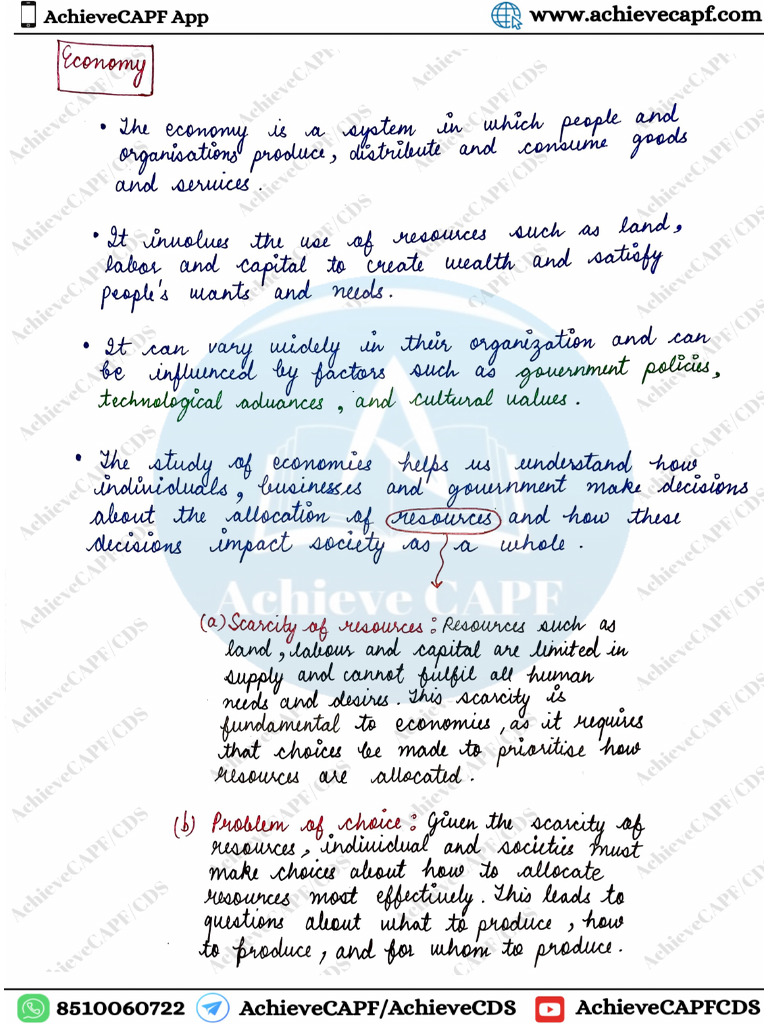 AchieveCAPF App
www.achievecapf.com
Economy
• The economy is a system in which people and
organisations produce, distribute and consume goods
and services.
• It involves the use of resources such as land,
labor and capital to create wealth and satisfy
people's wants and needs.
• It can vary widely in their organization and can
be influenced by factors such as government policies,
technological advances, and cultural values.
• The study of economies helps us understand how
individuals, businesses and government make decisions
about the allocation of resources and how these
decisions impact society as a whole.
Achieve CAPF
(a) Scarcity of resources: Resources such as
land, labour and capital are limited in
supply and cannot fulfil all human
needs and desires. This scarcity is
fundamental to economies, as it requires
that choices be made to prioritise how
resources are allocated.
(b) Problem of choice: Given the scarcity of
resources, individual and societies must
make choices about how to allocate
resources most effectively. This leads to
questions about what to produce, how
to produce, and for whom to produce.
AchieveCAPF/CDS
8510060722
AchieveCAPF/AchieveCDS
AchieveCAPFCDS